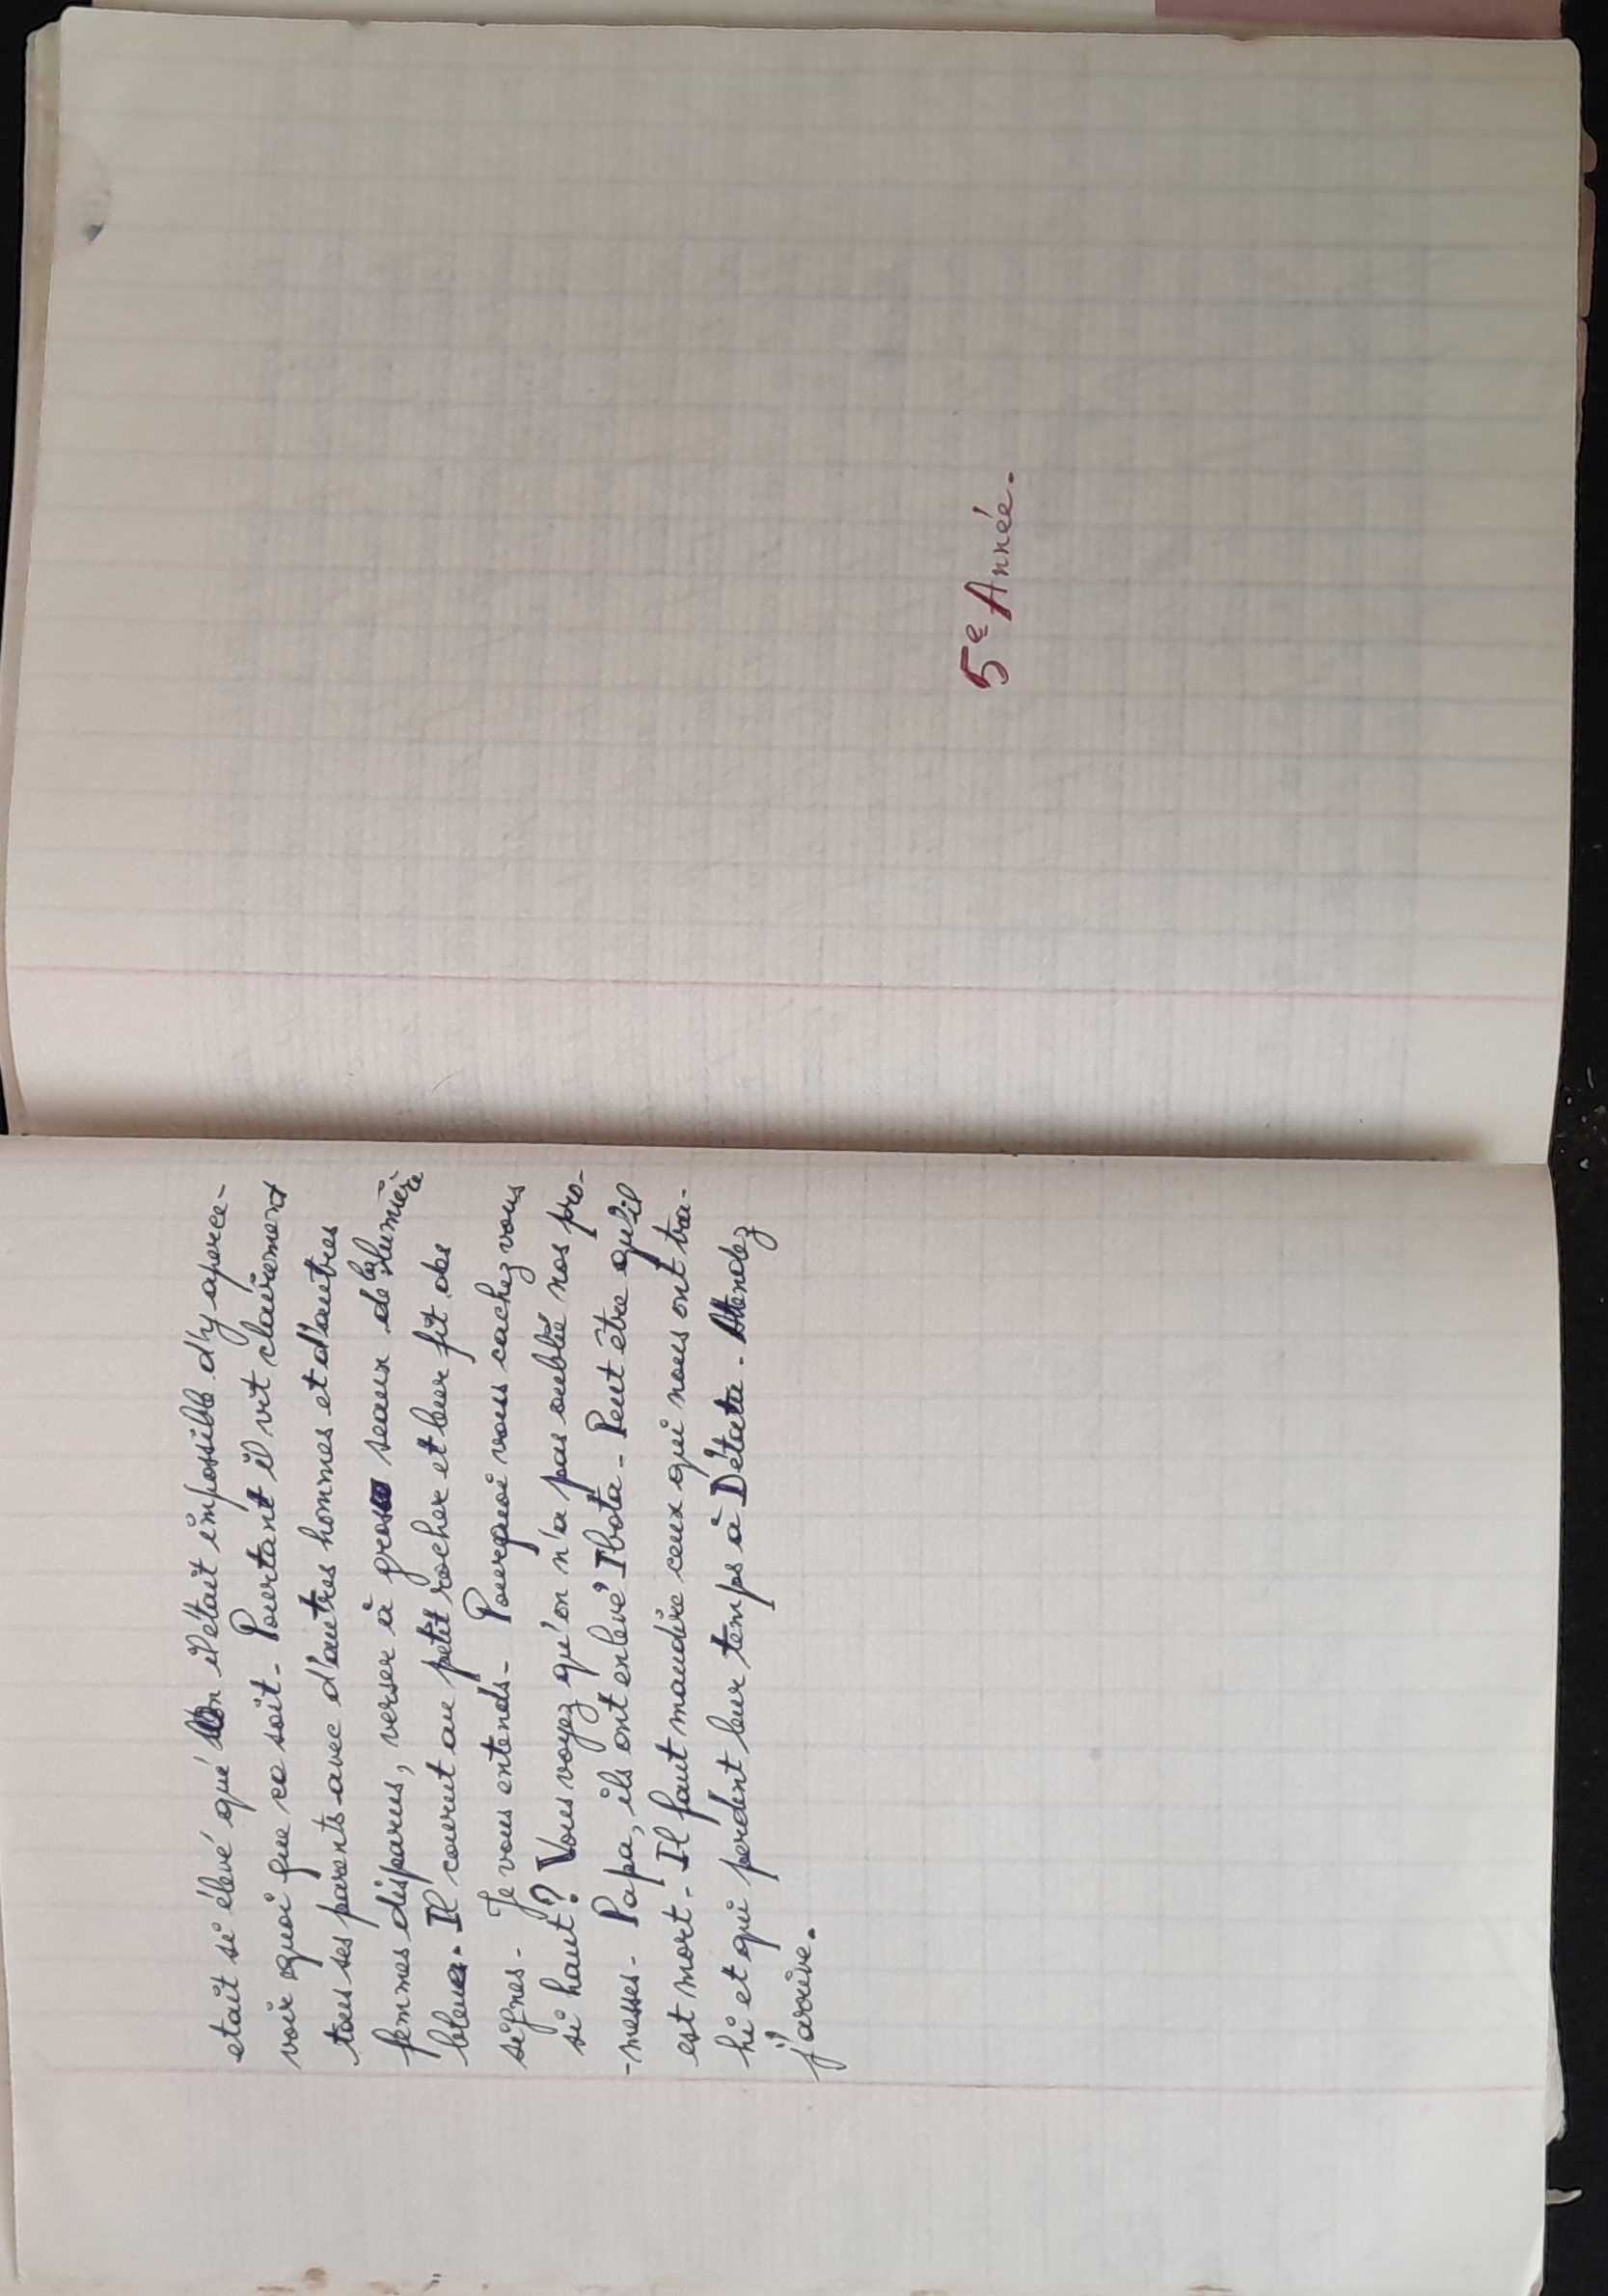 etait si élevé que il était impossible d'y aperce-
voir quoi que ce soit. Pourtant il vit clairement
tous ses parents avec d'autres hommes et d'autres
femmes disparus, verser à gros seaux de la lumière
bleue. Il courut au petit rocher et leur fit des
signes - Je vous entends - Pourquoi vous cachez vous
si haut ? Vous voyez qu'on n'a pas oublié nos pro-
-messes - Papa, ils ont enlevé Ibota - Peut être qu'il
est mort - Il faut maudire ceux qui nous ont tra-
hi et qui perdent leur temps à Détata - Attendez
j'arrive.
5e Année.